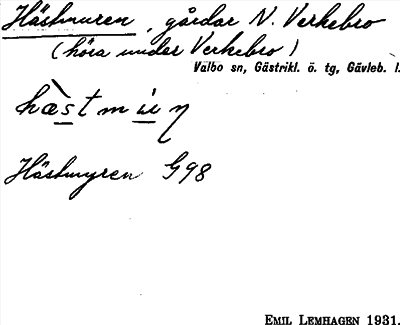 Hästmuren, gårdar N. Verkebro
(höra under Verkebro)
Valbo sn, Gästrikl. ö. tg, Gävleb. l.
Hästmyren G98
EMIL LEMHAGEN 1931.